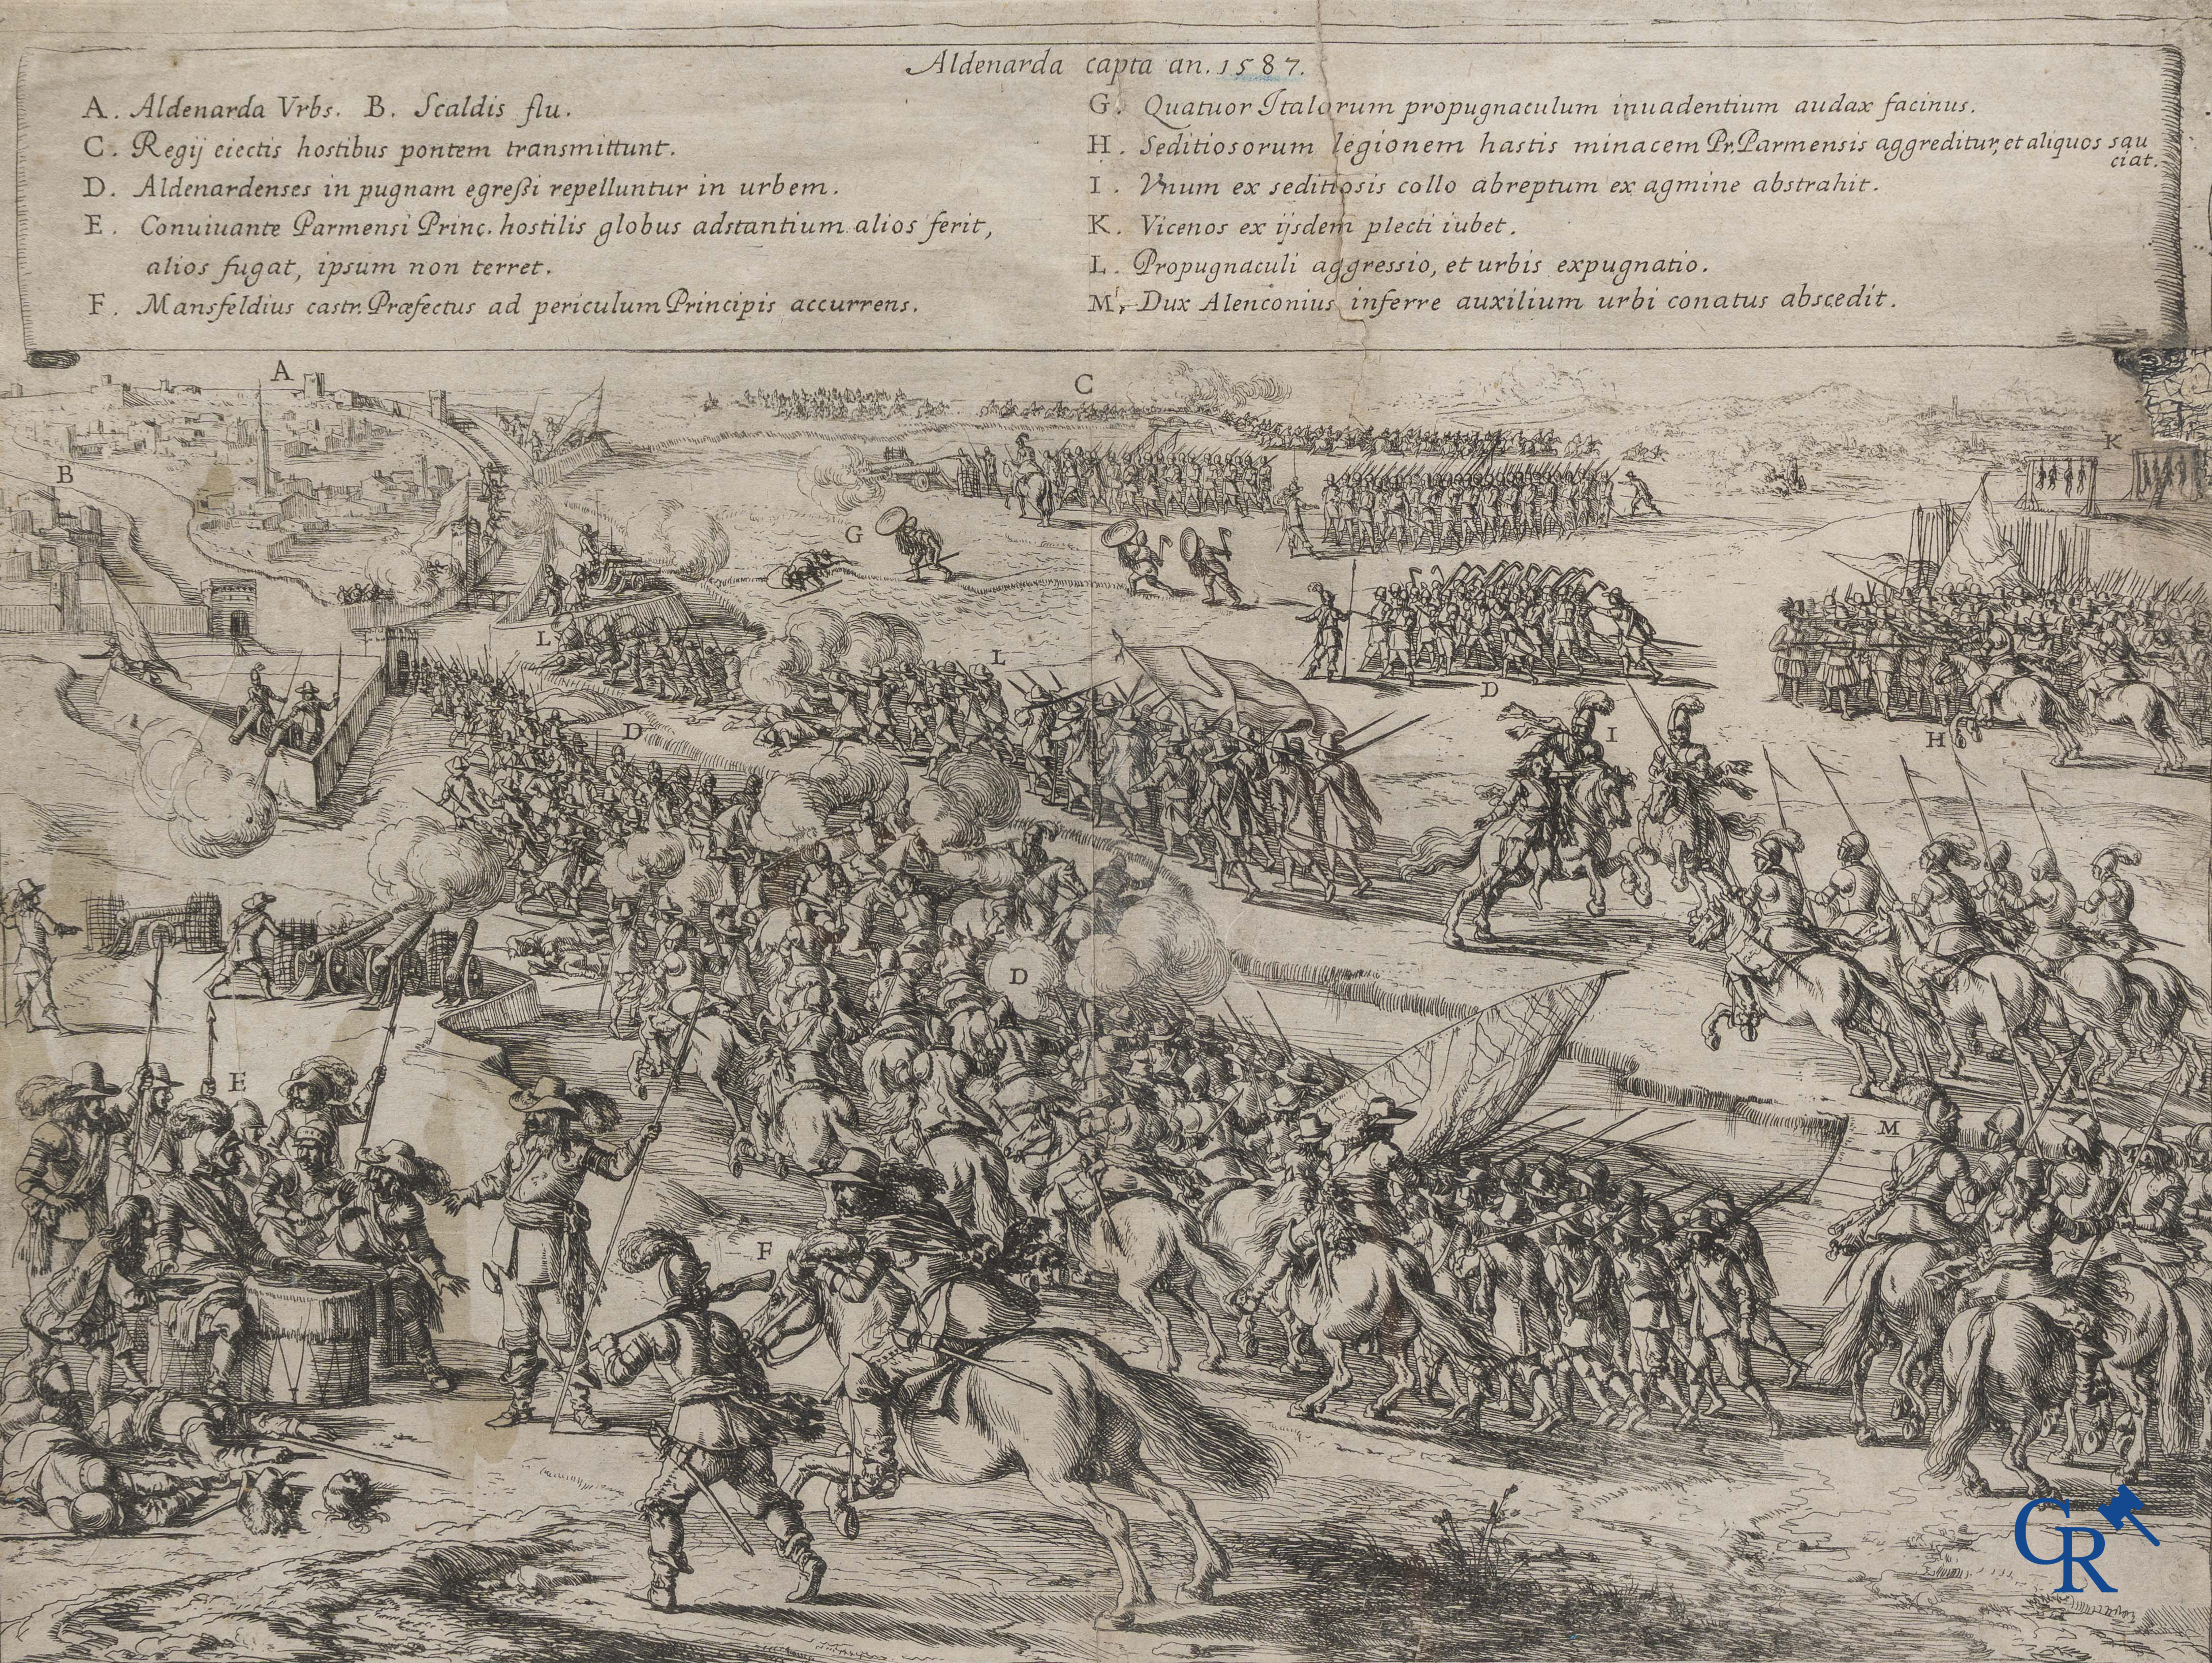 Aldenarda capta an. 1587.
A. Aldenarda Vrbs. B. Scaldis flu.
C. Regij eiectis hostibus pontem transmittunt.
D. Aldenardenses in pugnam egreßi repelluntur in urbem.
E. Conuiuante Parmensi Princ. hostilis globus adstantium alios ferit,
alios fugat, ipsum non terret.
F. Mansfeldius castr. Præfectus ad periculum Principis accurrens.
G. Quatuor Italorum propugnaculum inuadentium audax facinus.
H. Seditiosorum legionem hastis minacem Pr. Parmensis aggreditur, et aliquos sau
ciat.
I. Vnum ex seditiosis collo abreptum ex agmine abstrahit.
K. Vicenos ex ijsdem plecti iubet.
L. Propugnaculi aggressio, et urbis expugnatio.
M. Dux Alenconius inferre auxilium urbi conatus abscedit.
A
C
K
B
G
L
L
D
D
I
H
D
E
M
F
CR